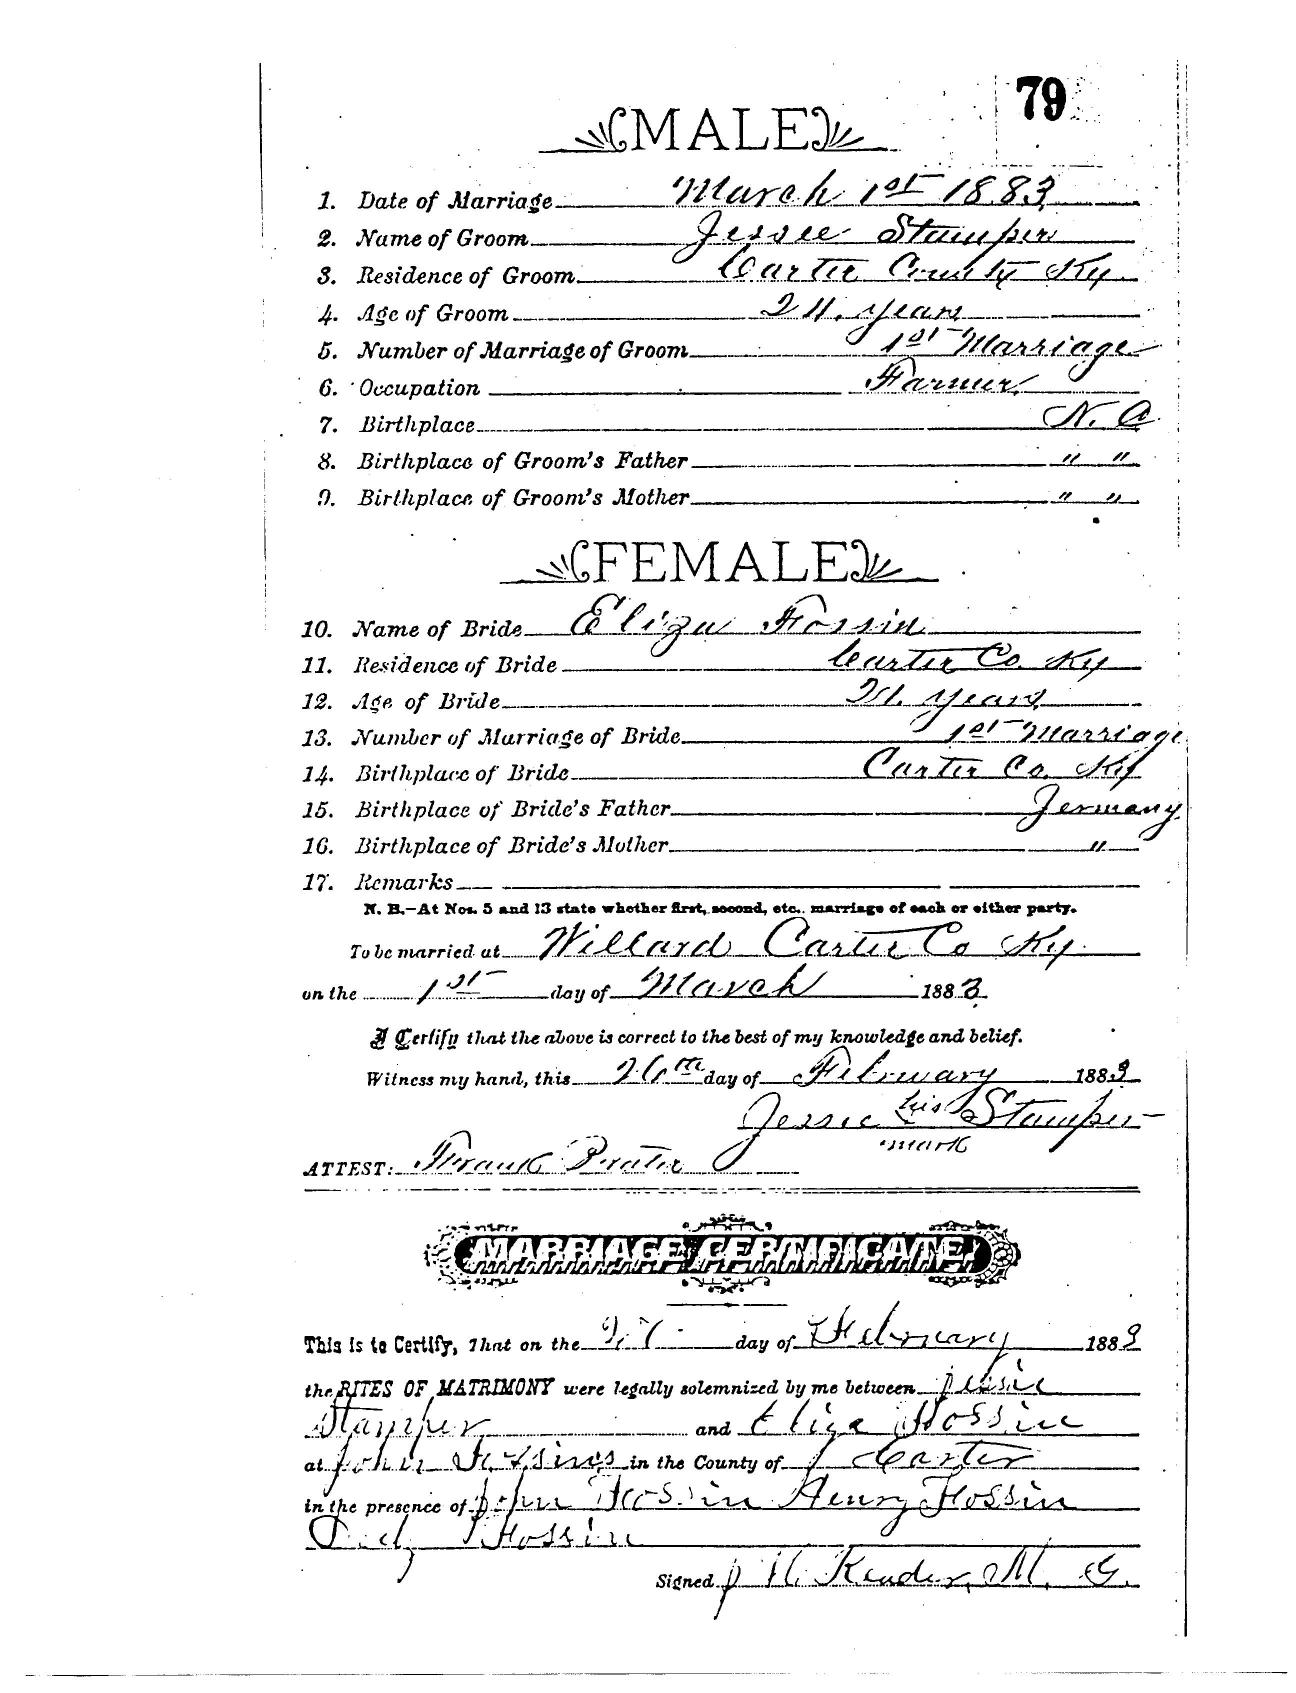 79
MALE
1. Date of Marriage March 1st 1883
2. Name of Groom Jessee Stamper
3. Residence of Groom Carter County Ky
4. Age of Groom 24 years
5. Number of Marriage of Groom 1st Marriage
6. Occupation Farmer
7. Birthplace N. C
8. Birthplace of Groom's Father " "
9. Birthplace of Groom's Mother " "
FEMALE
10. Name of Bride Eliza Fossin
11. Residence of Bride Carter Co. Ky
12. Age of Bride 21. years
13. Number of Marriage of Bride 1st Marriage
14. Birthplace of Bride Carter Co. Ky
15. Birthplace of Bride's Father Germany
16. Birthplace of Bride's Mother "
17. Remarks
N. B.—At Nos. 5 and 13 state whether first, second, etc., marriage of each or either party.
To be married at Willard Carter Co Ky
on the 1st day of March 1883
I Certify that the above is correct to the best of my knowledge and belief.
Witness my hand, this 26th day of February 1883
Jessie his Stamper
mark
ATTEST: Frank Prater
MARRIAGE CERTIFICATE
This is to Certify, That on the day of February 1883
the RITES OF MATRIMONY were legally solemnized by me between Jessie
Stamper and Eliza Fossin
at John Fossins in the County of Carter
in the presence of John Fossin Henry Fossin
Fossin
Signed J H. M. G.